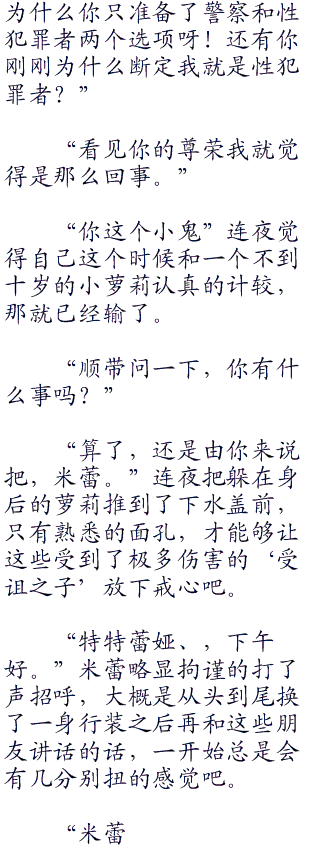 为什么你只准备了警察和性
犯罪者两个选项呀！还有你
刚刚为什么断定我就是性犯
罪者？”
“看见你的尊荣我就觉
得是那么回事。”
“你这个小鬼”连夜觉
得自己这个时候和一个不到
十岁的小萝莉认真的计较，
那就已经输了。
“顺带问一下，你有什
么事吗？”
“算了，还是由你来说
把，米蕾。”连夜把躲在身
后的萝莉推到了下水盖前，
只有熟悉的面孔，才能够让
这些受到了极多伤害的‘受
诅之子’放下戒心吧。
“特特蕾娅、，下午
好。”米蕾略显拘谨的打了
声招呼，大概是从头到尾换
了一身行装之后再和这些朋
友讲话的话，一开始总是会
有几分别扭的感觉吧。
“米蕾